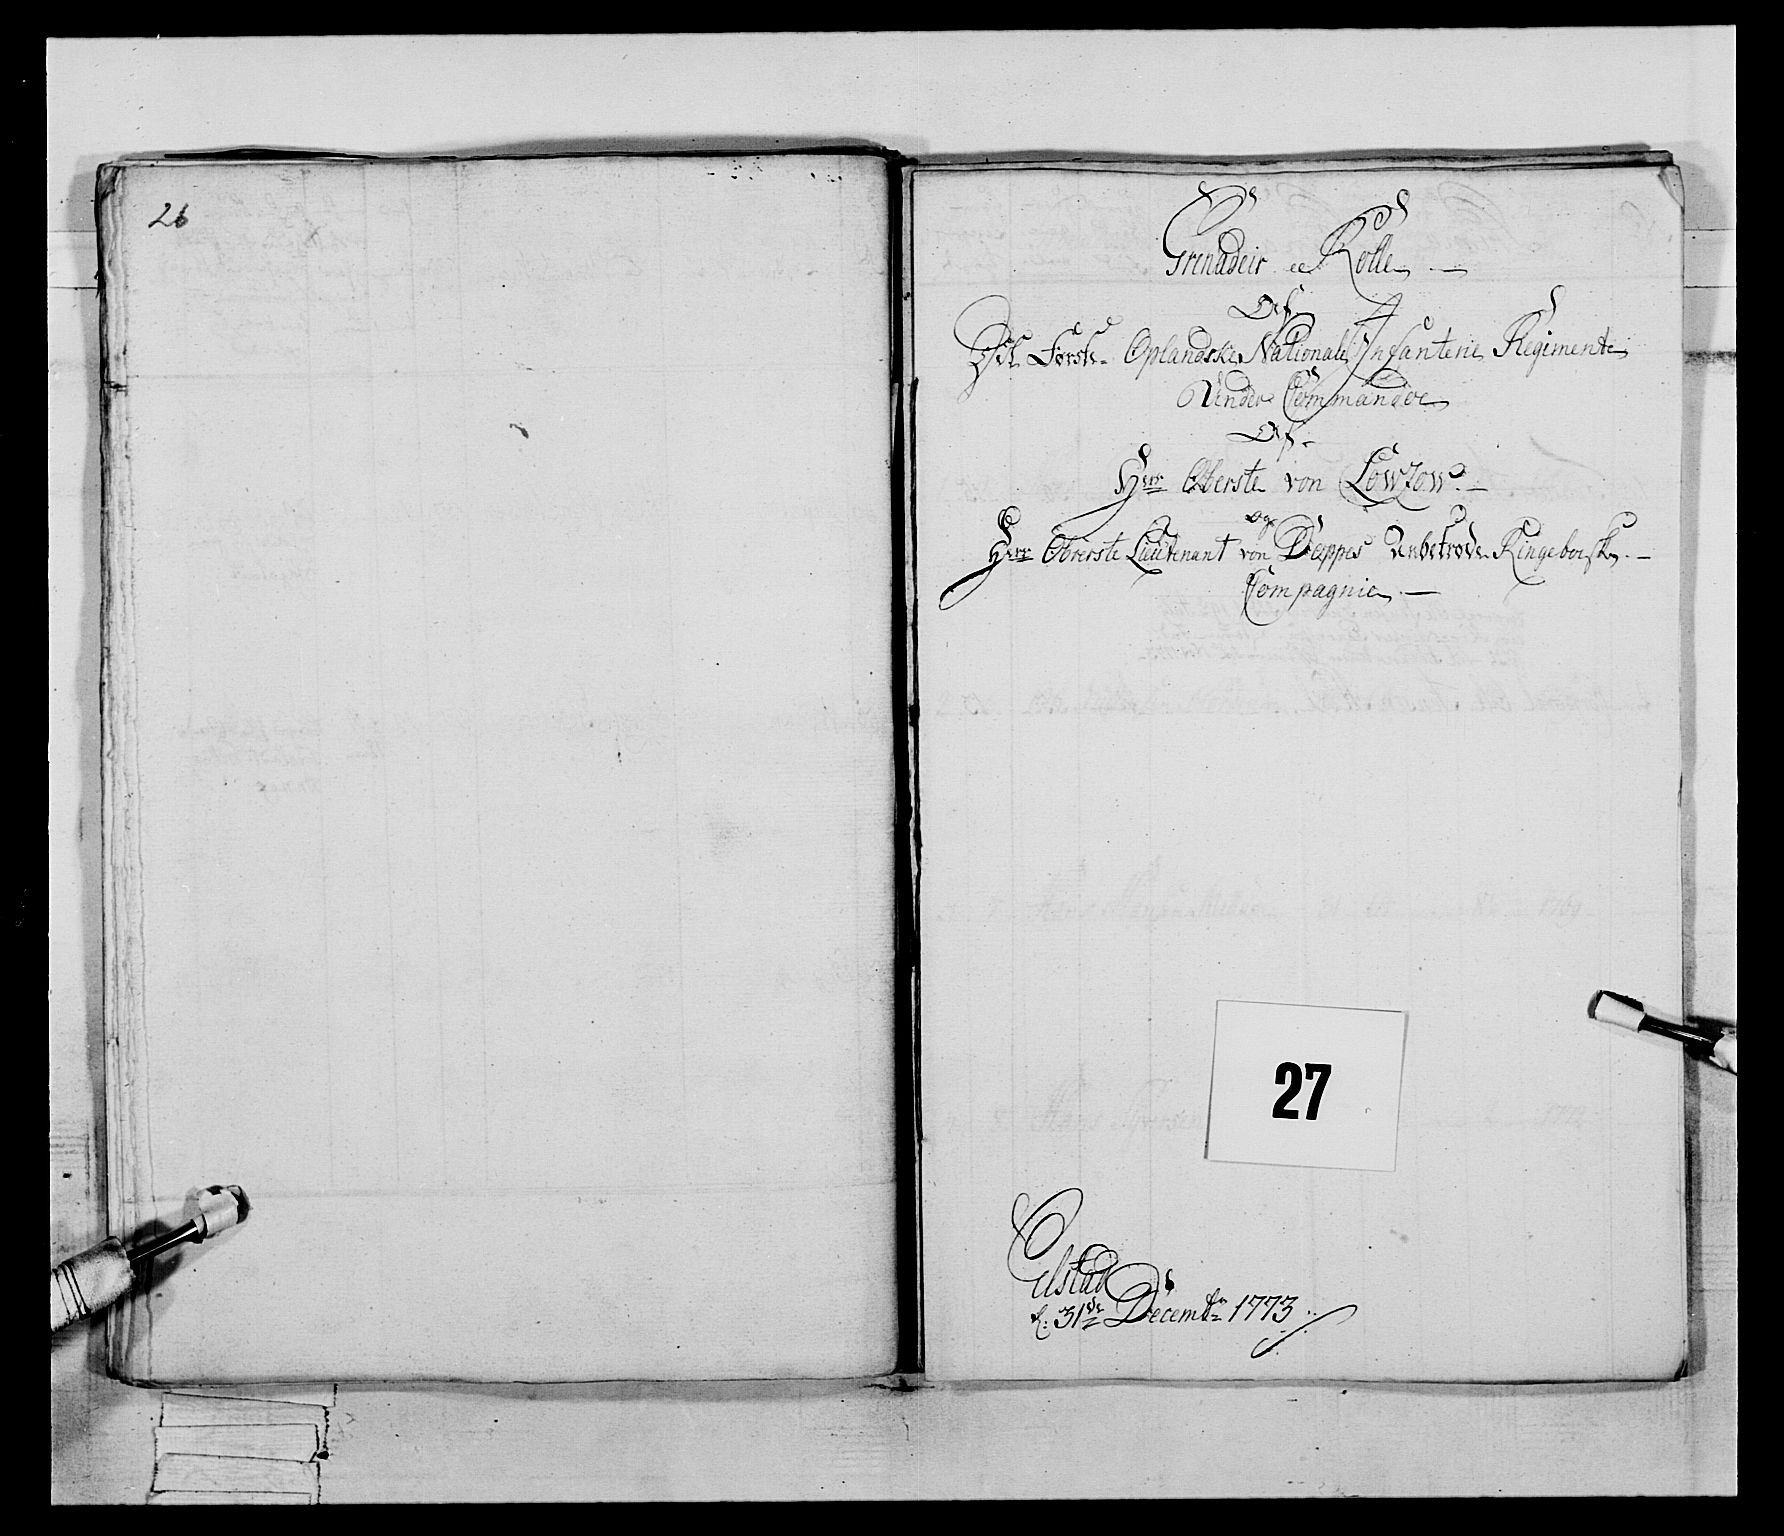 26
Grenadeir Rolle
Af
Det Første Oplandske National Infanterie Regimente
Under Commandoe
Af
Herr Oberste von Lowzow
og
Herr Oberste Lieutenant von Deppes Anbetroede Ringeboeske
Compagnie
27
Elstad
d: 31de Decembr 1773